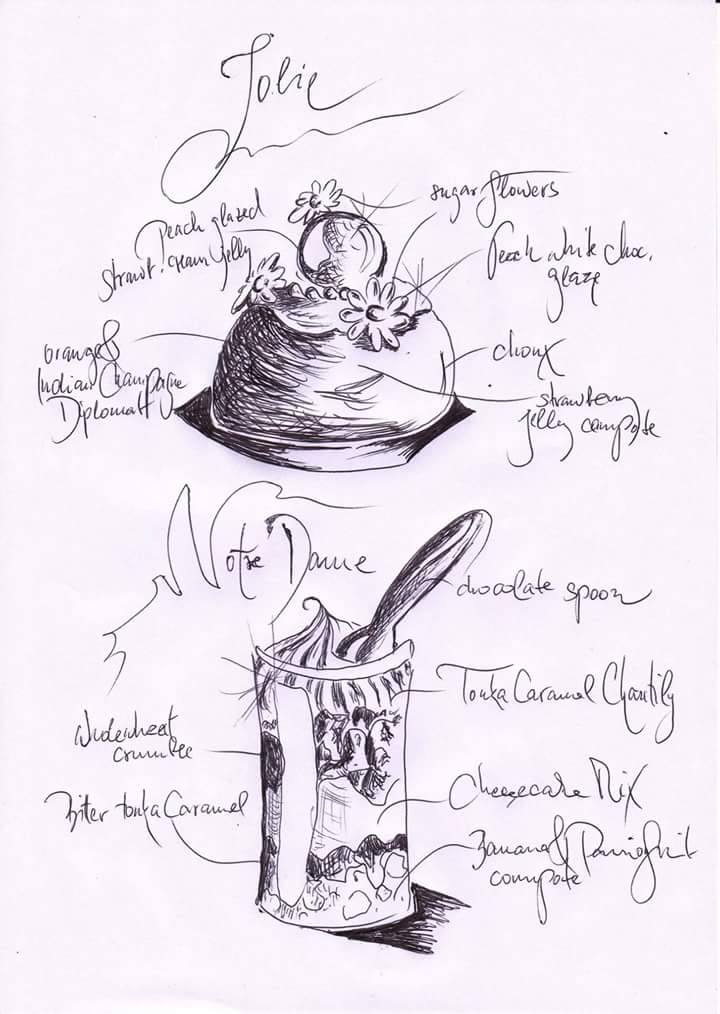 Jolie
sugar flowers
Peach glazed
strawb. cream jelly
Peach white choc.
glaze
orange &
Indian Champagne
Diplomatt
choux
strawberry
jelly compote
Notre Dame
chocolate spoon
Tonka Caramel Chantily
crumble
Cheesecake Mix
Biter tonka Caramel
Banana &
compote